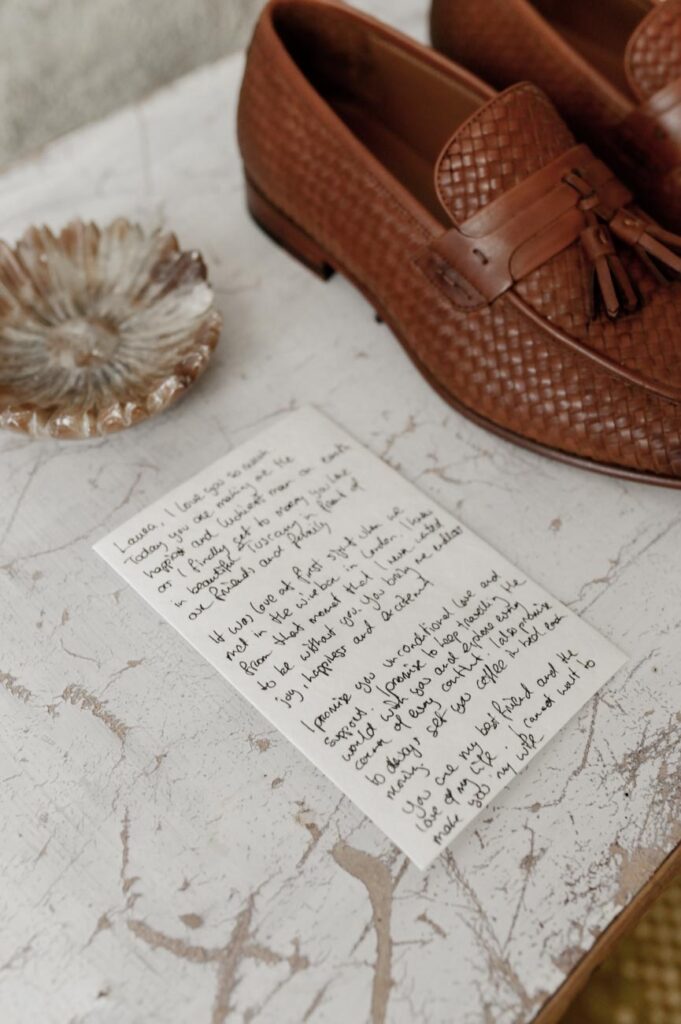 Laura, I love you so much
Today you are making me the
happiest and luckiest man on earth
as I finally get to marry you here
in beautiful Tuscany in front of
our friends and family
It was love at first sight when we
met in the winebar in London. I knew
from that moment that I never wanted
to be without you. You bring me endless
joy, happiness and excitement
I promise you unconditional love and
support. I promise to keep travelling the
world with you and explore every
corner of every continent. I also promise
to always get you coffee in bed each
morning.
You are my best friend and the
love of my life. I cannot wait to
make you my wife